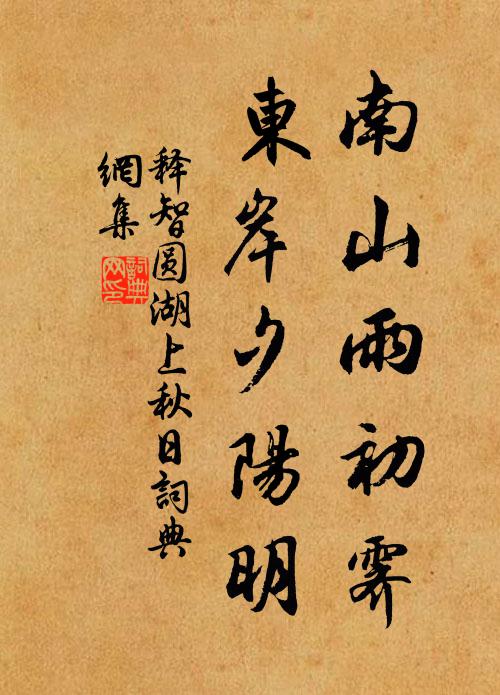 南山雨初霽
東岸夕陽明
释智圆湖上秋日詞典
網集
詞典
网印